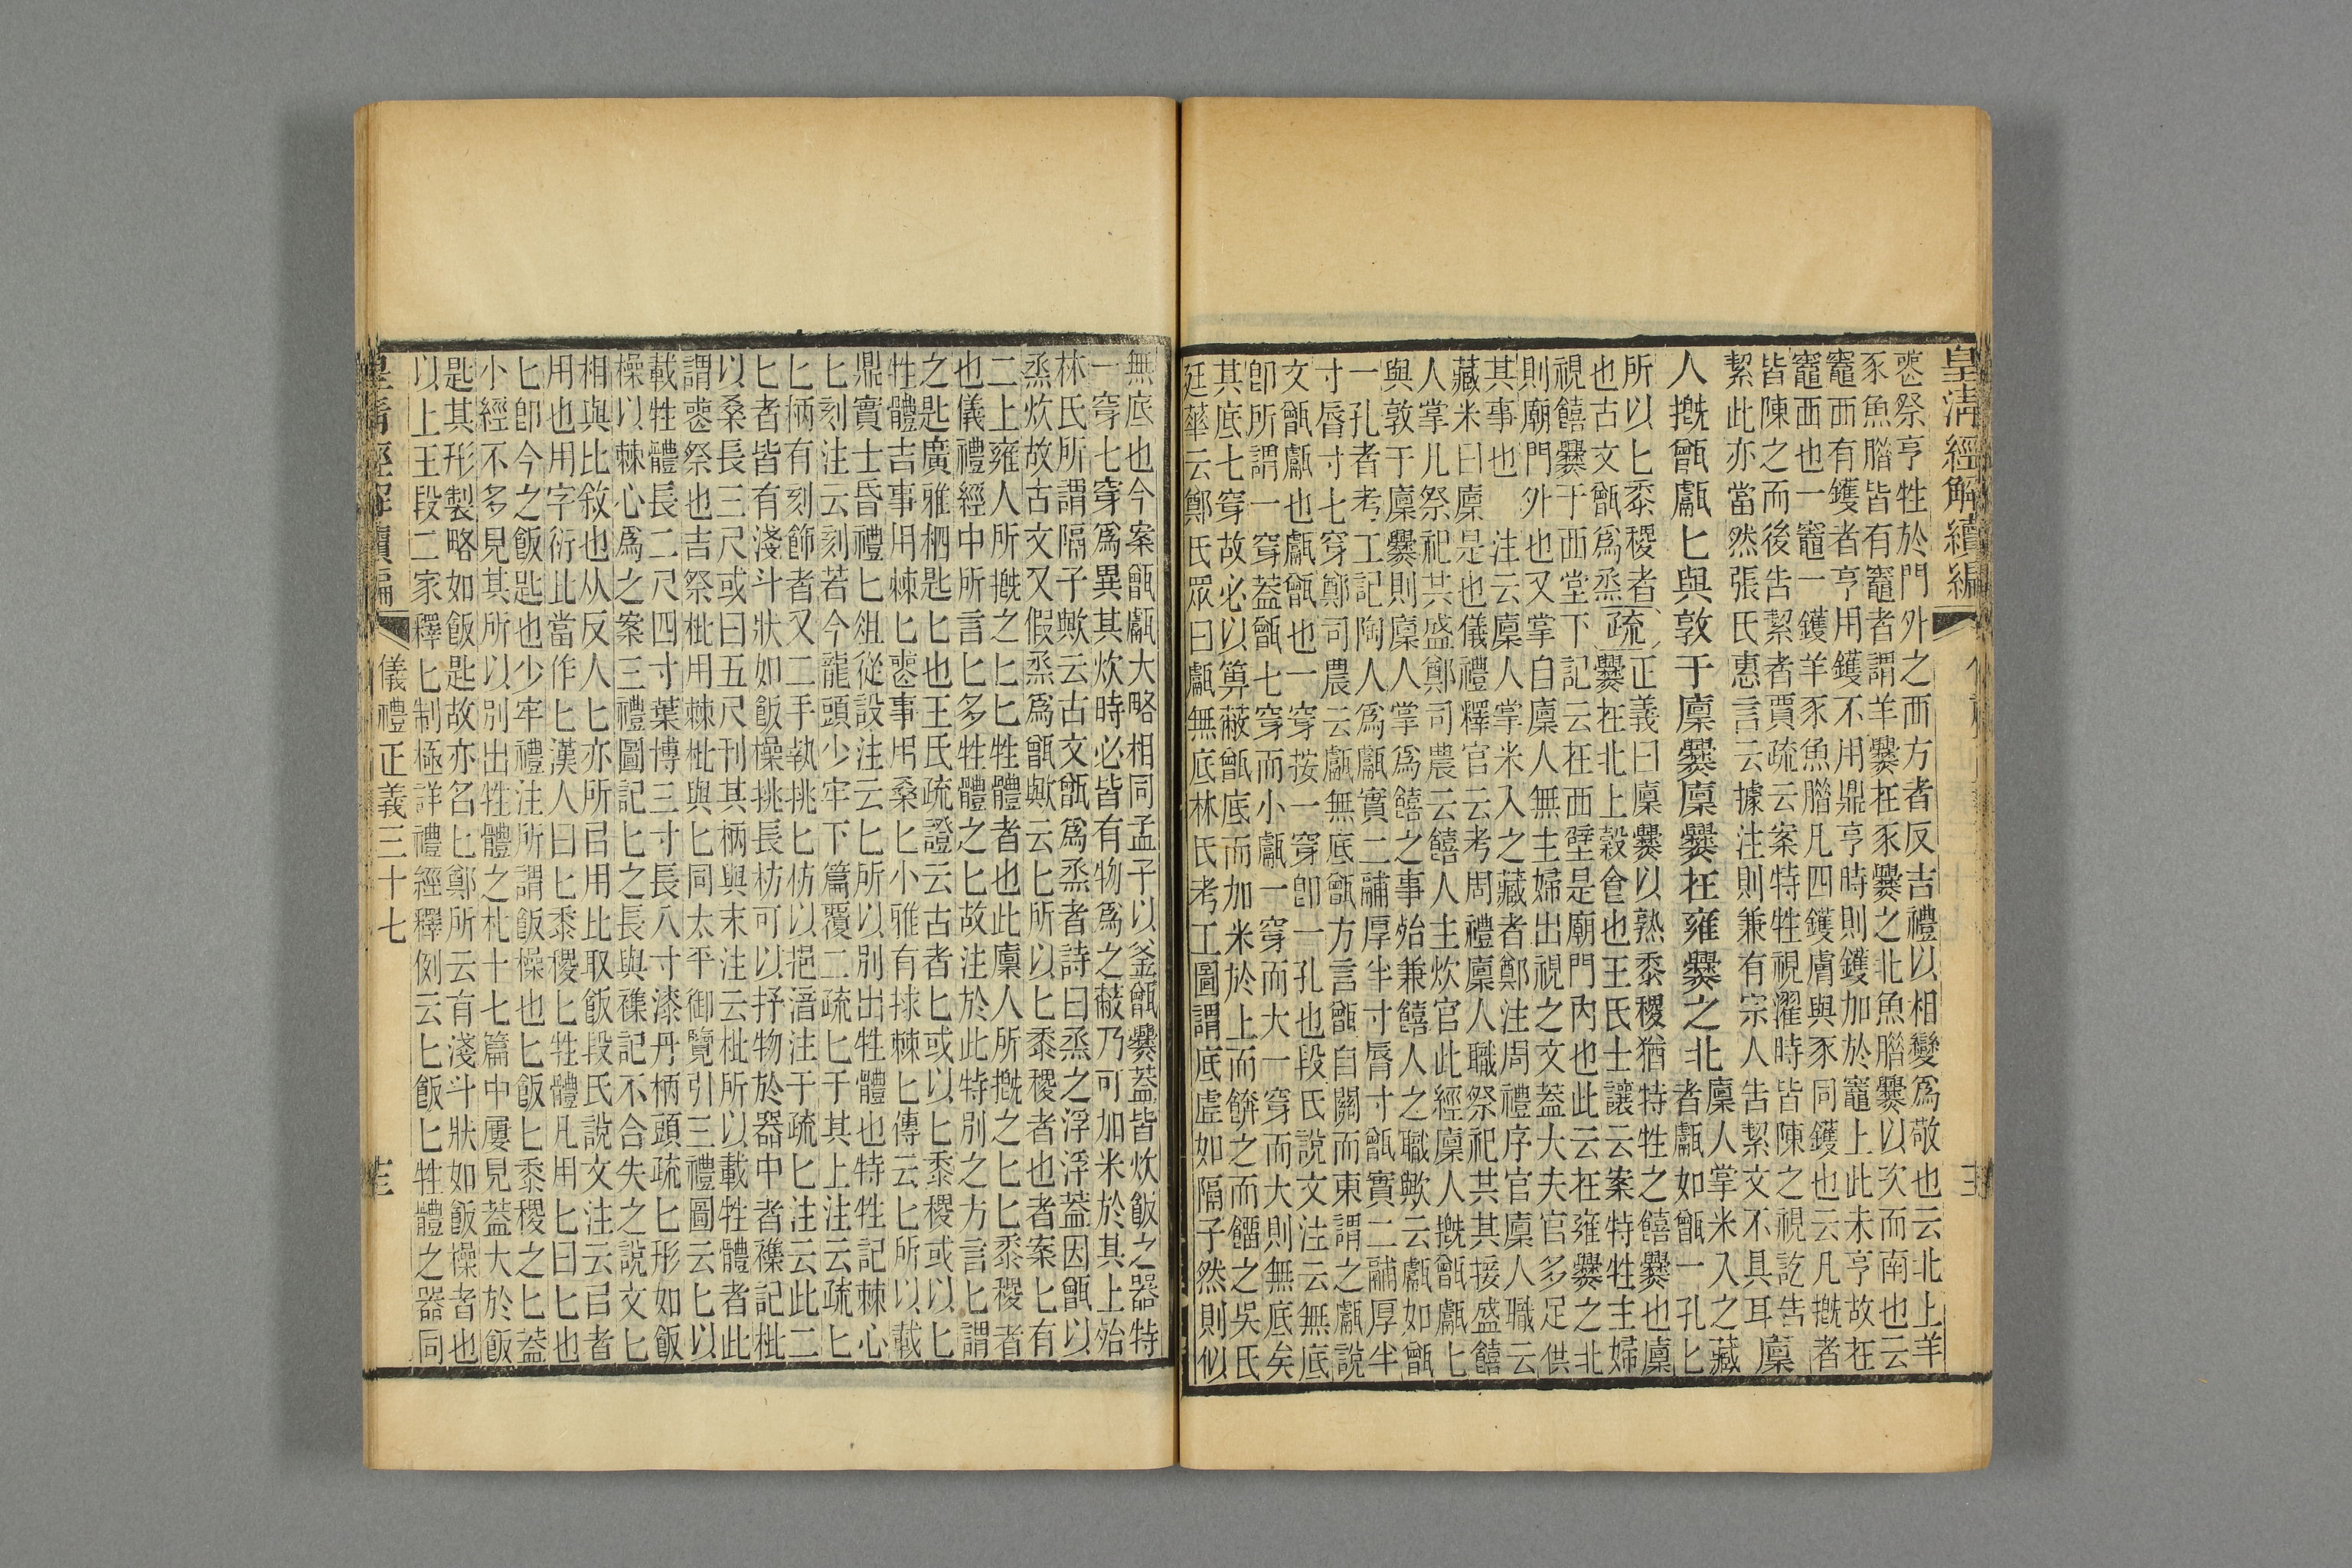 皇清經解續編
喪祭亨牲於門外之而方者反吉禮以相變爲敬也云北上羊
豕魚腊皆有竈者謂羊爨在豕爨之北魚腊爨以次而南也云
竈西有鑊者亨用鑊不用鼎亨時則鑊加於竈上此未亨故在
竈西也一竈一鑊羊豕魚腊凡四鑊膚與豕同鑊也云凡摡者
皆陳之而後告絜者賈疏云案特牲視濯時皆陳之視訖告
絜此亦當然張氏惠言云據注則兼有宗人告絜文不具耳廩
人摡甑甗匕與敦于廩爨廩爨在雍爨之北廩人掌米入之藏
者甗如甑一孔匕
所以匕黍稷者
也古文甑爲烝疏正義曰廩爨以熟黍稷猶特牲之饎爨也廩
爨在北上穀食也王氏士讓云案特牲主婦
視饎爨于西堂下記云在西壁是廟門內也此云在雍爨之北
則廟門外也又掌自廩人無主婦出視之文蓋大夫官多足供
其事也 注云廩人掌米入之藏者鄭注周禮序官廩人職云
藏米曰廩是也儀禮釋官云考周禮廩人職祭祀其接盛饎
人掌凡祭祀共盛鄭司農云饎人主炊官此經廩人摡甑甗匕
與敦于廩爨則廩人掌爲饎之事殆兼饎人之職歟云甗如甑
一孔者考工記陶人爲甗實二鬴厚半寸脣寸甑實二鬴厚半
寸脣寸七穿鄭司農云甗無底甑方言甑自關而東謂之甗說
文甑甗也甗甑也一穿按一穿卽一孔也段氏說文注云無底
卽所謂一穿蓋甑七穿而小甗一穿而大一穿而大則無底矣
其底七穿故必以箅蔽甑底而加米於上而餴之而餾之吳氏
廷華云鄭氏眾曰甗無底林氏考工圖謂底虛如隔子然則似
無底也今案甑甗大略相同孟子以釜甑爨蓋皆炊飯之器特
一穿七穿爲異其炊時必皆有物爲之蔽乃可加米於其上殆
林氏所謂隔子歟云古文甑爲烝者詩曰烝之浮浮蓋因甑以
烝炊故古文又假烝爲甑歟云匕所以匕黍稷者也者案匕有
二上雍人所摡之匕匕牲體者也此廩人所摡之匕匕黍稷者
也儀禮經中所言匕多牲體之匕故注於此特別之方言匕謂
之匙廣雅柶匙匕也王氏疏證云古者匕或以匕黍稷或以匕
牲體吉事用棘匕喪事用桑匕小雅有捄棘匕傳云匕所以載
鼎實士昏禮匕俎從設注云匕所以別出牲體也特牲記棘心
匕刻注云刻若今龍頭少牢下篇覆二疏匕于其上注云疏匕
匕柄有刻飾者又二手執挑匕枋以挹湆注于疏匕注云此二
匕者皆有淺斗狀如飯橾挑長枋可以抒物於器中者禮記枇
以桑長三尺或曰五尺刊其柄與末注云枇所以載牲體者此
謂喪祭也吉祭枇用棘枇與匕同太平御覽引三禮圖云匕以
載牲體長二尺四寸葉博三寸長八寸漆丹柄頭疏匕形如飯
橾以棘心爲之案三禮圖記匕之長與襍記不合失之說文匕
相與比敘也从反人匕亦所㠯用比取飯段氏說文注云㠯者
用也用字衍此當作匕漢人曰匕黍稷匕牲體凡用匕曰匕也
匕卽今之飯匙也少牢禮注所謂飯橾也匕飯匕黍稷之匕蓋
小經不多見其所以別出牲體之朼十七篇中屢見蓋大於飯
匙其形製略如飯匙故亦名匕鄭所云有淺斗狀如飯橾者也
以上王段二家釋匕制極詳禮經釋例云匕飯匕牲體之器同
皇清經解續編 儀禮正義三十七